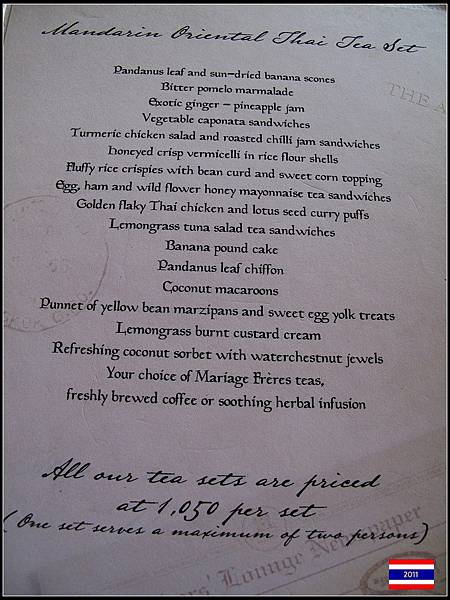 Mandarin Oriental Thai Tea Set
Pandanus leaf and sun-dried banana scones
Bitter pomelo marmalade
Exotic ginger - pineapple jam
Vegetable caponata sandwiches
Turmeric chicken salad and roasted chilli jam sandwiches
Honeyed crisp vermicelli in rice flour shells
Fluffy rice crispies with bean curd and sweet corn topping
Egg, ham and wild flower honey mayonnaise tea sandwiches
Golden flaky Thai chicken and lotus seed curry puffs
Lemongrass tuna salad tea sandwiches
Banana pound cake
Pandanus leaf chiffon
Coconut macaroons
Punnet of yellow bean marzipans and sweet egg yolk treats
Lemongrass burnt custard cream
Refreshing coconut sorbet with waterchestnut jewels
Your choice of Mariage Frères teas,
freshly brewed coffee or soothing herbal infusion
All our tea sets are priced
at 1,050 per set
(One set serves a maximum of two persons)
THE A
Lounge Newspaper
2011